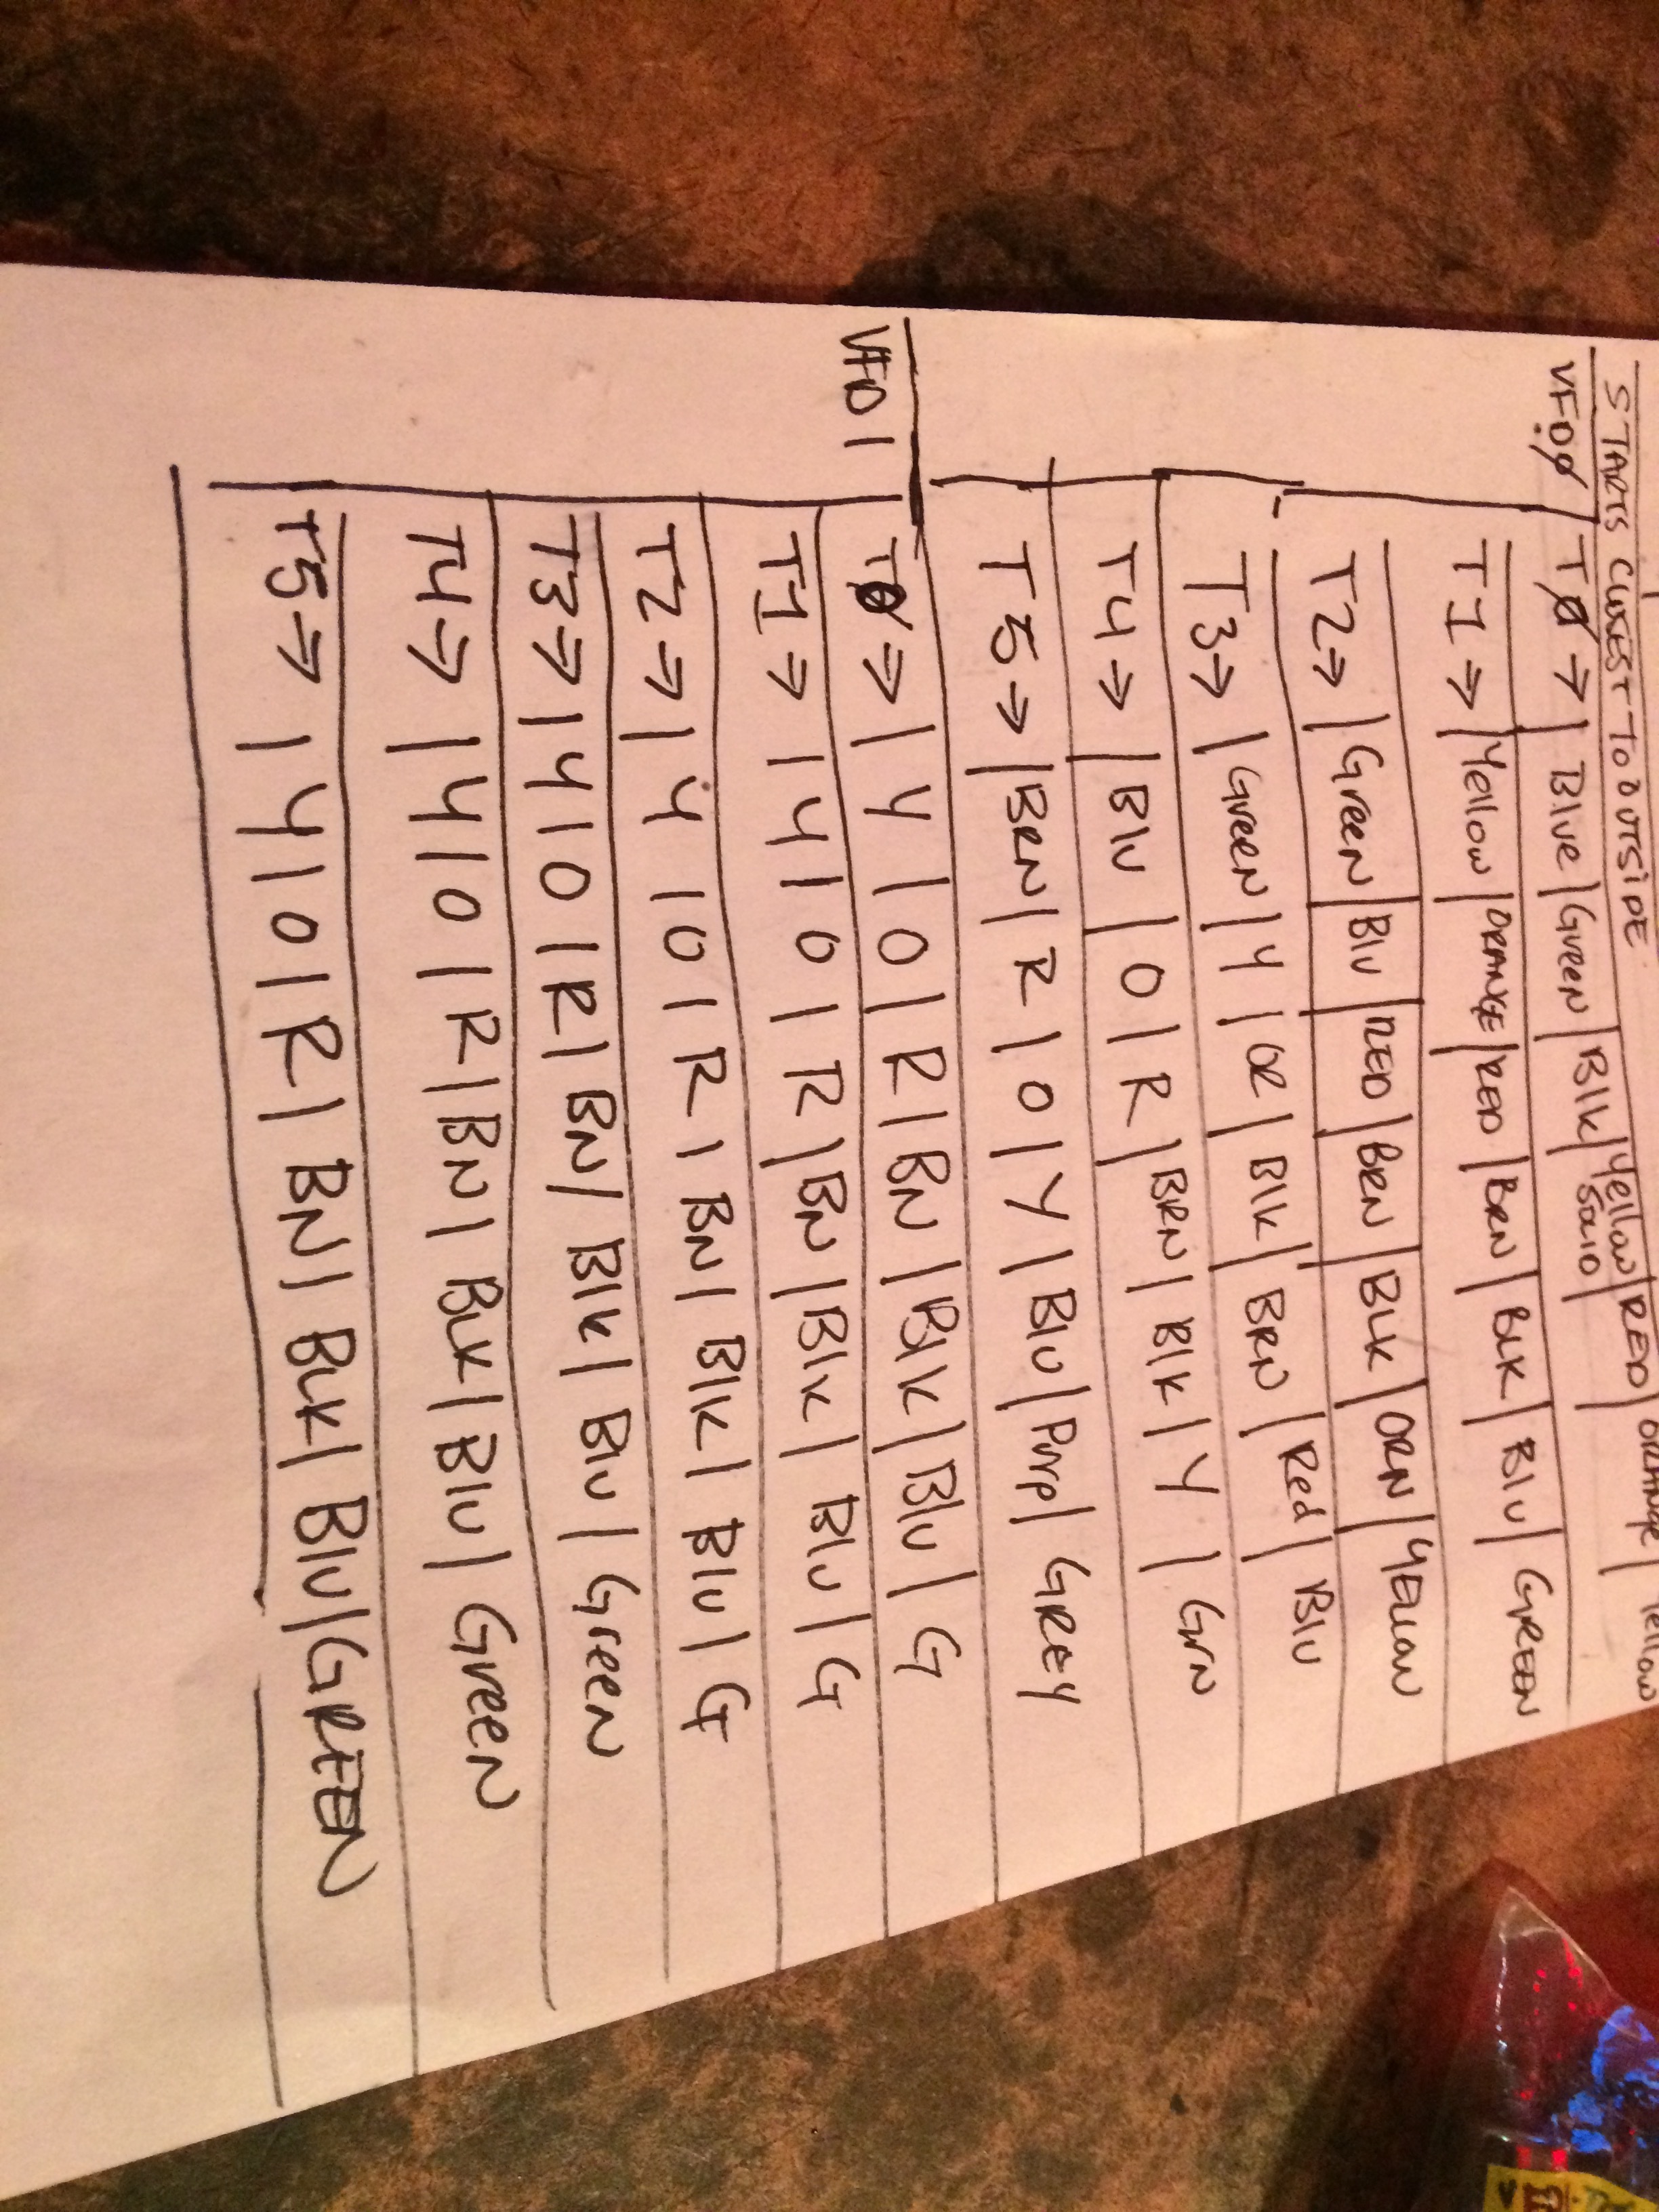 STARTS CLOSEST TO OUTSIDE
VFD0 TØ → | Blue | Green | Blk | Yellow Solid | RED | ORANGE | Yellow
T1 → | Yellow | ORANGE | RED | BRN | BLK | Blu | GREEN
T2 → | Green | Blu | RED | BRN | BLK | ORN | YEllow
T3 → | Green | Y | OR | Blk | BRN | Red | Blu
T4 → | Blu | O | R | BRN | Blk | Y | Grn
T5 → | BRN | R | O | Y | Blu | Purp | GREY
VFD1 TØ → | Y | O | R | BN | Blk | Blu | G
T1 → | Y | O | R | BN | Blk | Blu | G
T2 → | Y | O | R | BN | Blk | Blu | G
T3 → | Y | O | R | BN | Blk | Blu | Green
T4 → | Y | O | R | BN | BLK | Blu | Green
T5 → | Y | O | R | BN | BLK | Blu | GREEN